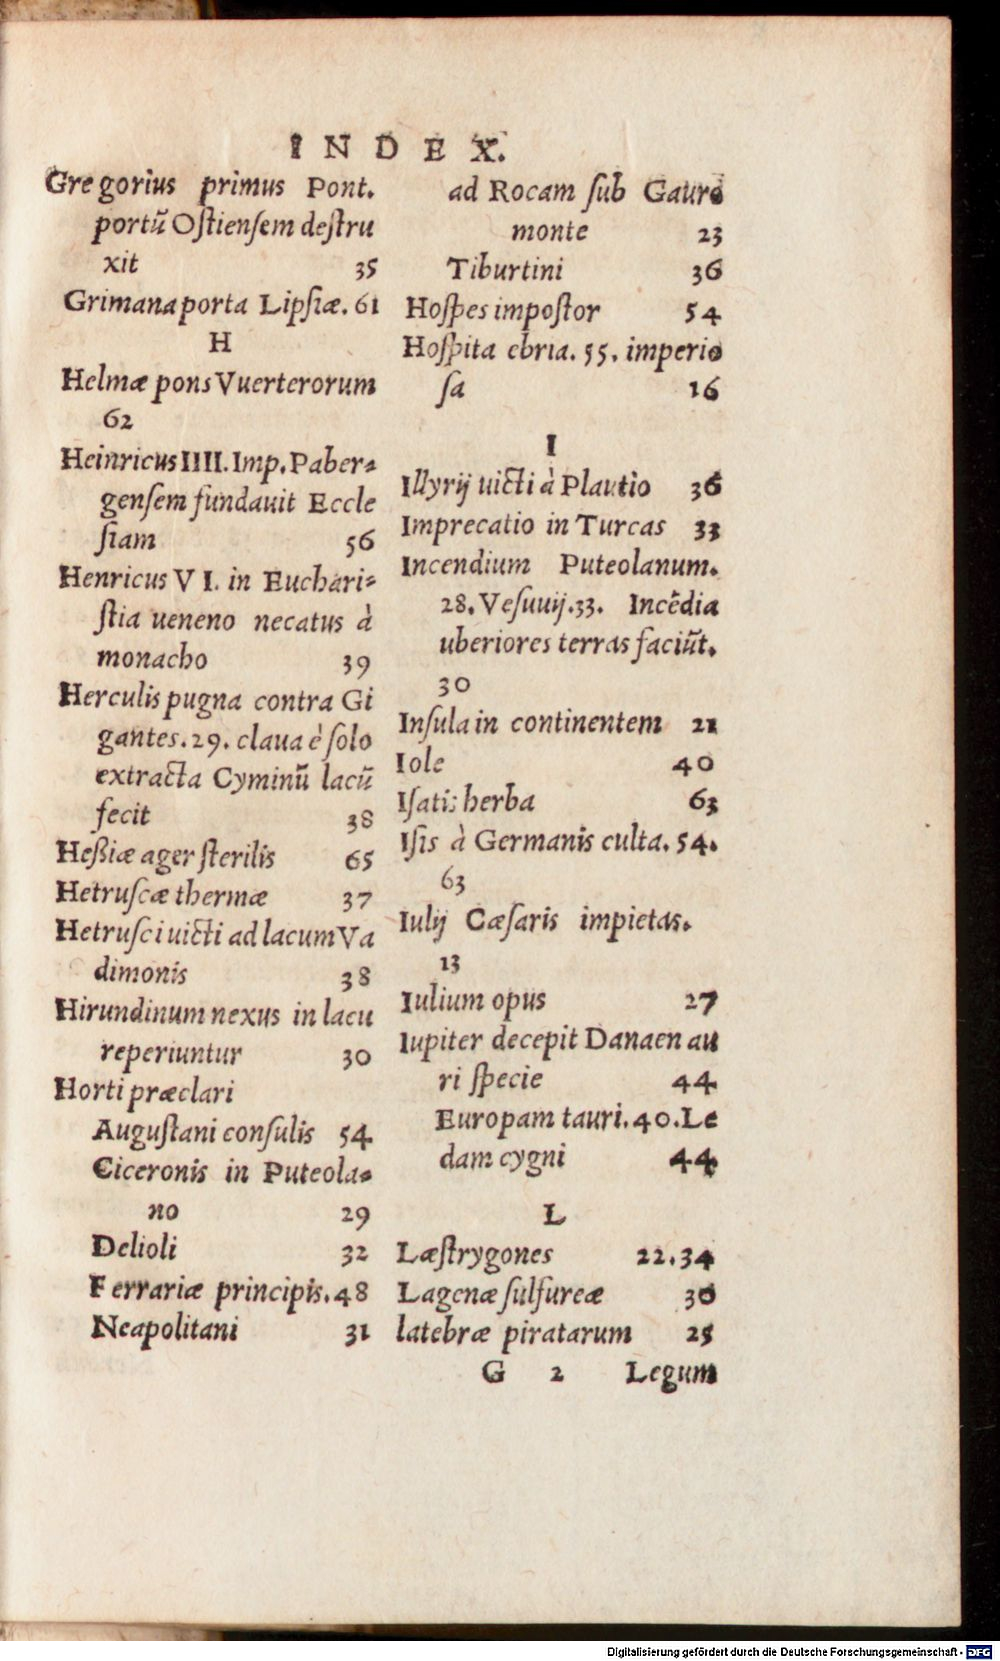 INDEX.
Gregorius primus Pont.
portū Ostiensem destru
xit 35
Grimana porta Lipsiæ. 61
H
Helmæ pons Vuerterorum
62
Heinricus IIII. Imp. Paber-
gensem fundauit Eccle
siam 56
Henricus VI. in Euchari-
stia ueneno necatus à
monacho 39
Herculis pugna contra Gi
gantes. 29. claua è solo
extracta Cyminū lacū
fecit 38
Heßiæ ager sterilis 65
Hetruscæ thermæ 37
Hetrusci uicti ad lacum Va
dimonis 38
Hirundinum nexus in lacu
reperiuntur 30
Horti præclari
Augustani consulis 54
Ciceronis in Puteola-
no 29
Delioli 32
Ferrariæ principis. 48
Neapolitani 31
ad Rocam sub Gauro
monte 23
Tiburtini 36
Hospes impostor 54
Hospita ebria. 55. imperio
sa 16
I
Illyrij uicti à Plautio 36
Imprecatio in Turcas 33
Incendium Puteolanum.
28. Vesuuij. 33. Incēdia
uberiores terras faciūt.
30
Insula in continentem 21
Iole 40
Isatis herba 63
Isis à Germanis culta. 54.
63
Iulij Cæsaris impietas.
13
Iulium opus 27
Iupiter decepit Danaen au
ri specie 44
Europam tauri. 40. Le
dam cygni 44
L
Læstrygones 22. 34
Lagenæ sulfureæ 30
latebræ piratarum 25
G 2 Legum
Digitalisierung gefördert durch die Deutsche Forschungsgemeinschaft - DFG